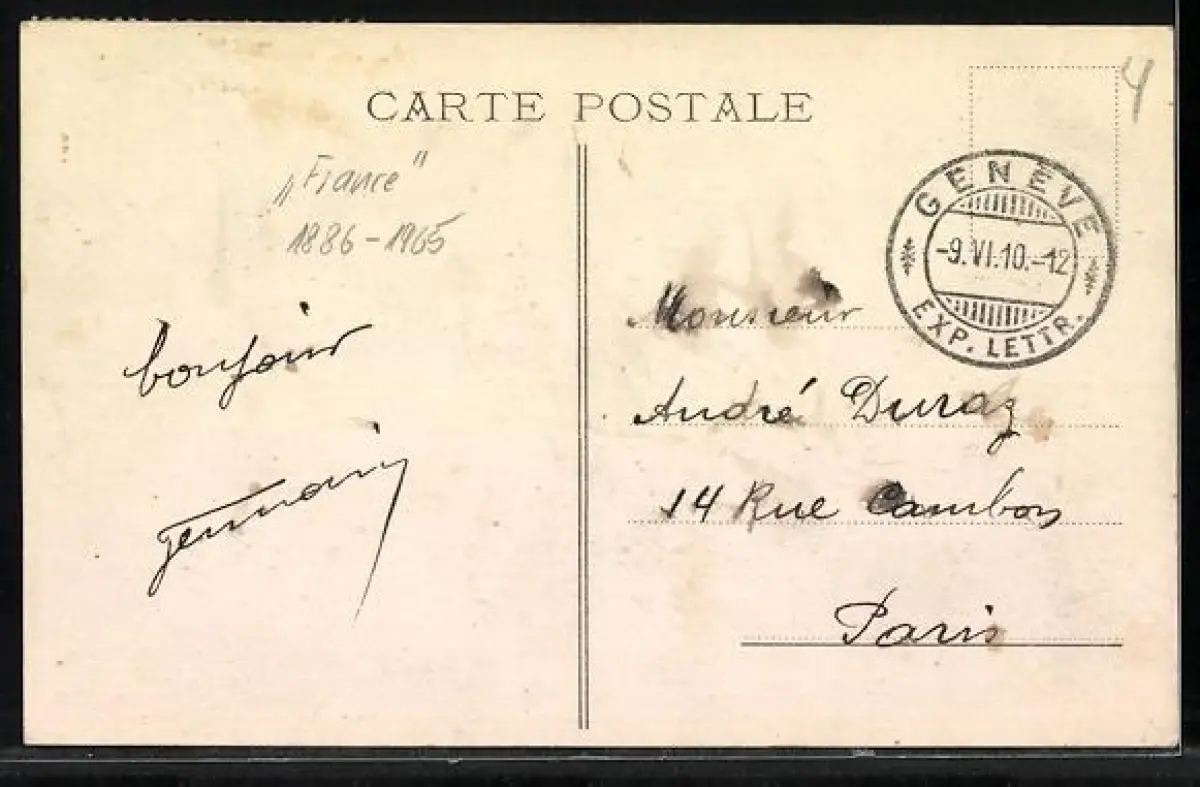 CARTE POSTALE
4
„France"
1886-1965
bonjour
germain
GENÈVE
-9.VI.10.-12
EXP. LETTR.
Monsieur
André Duraz
14 Rue Cambon
Paris